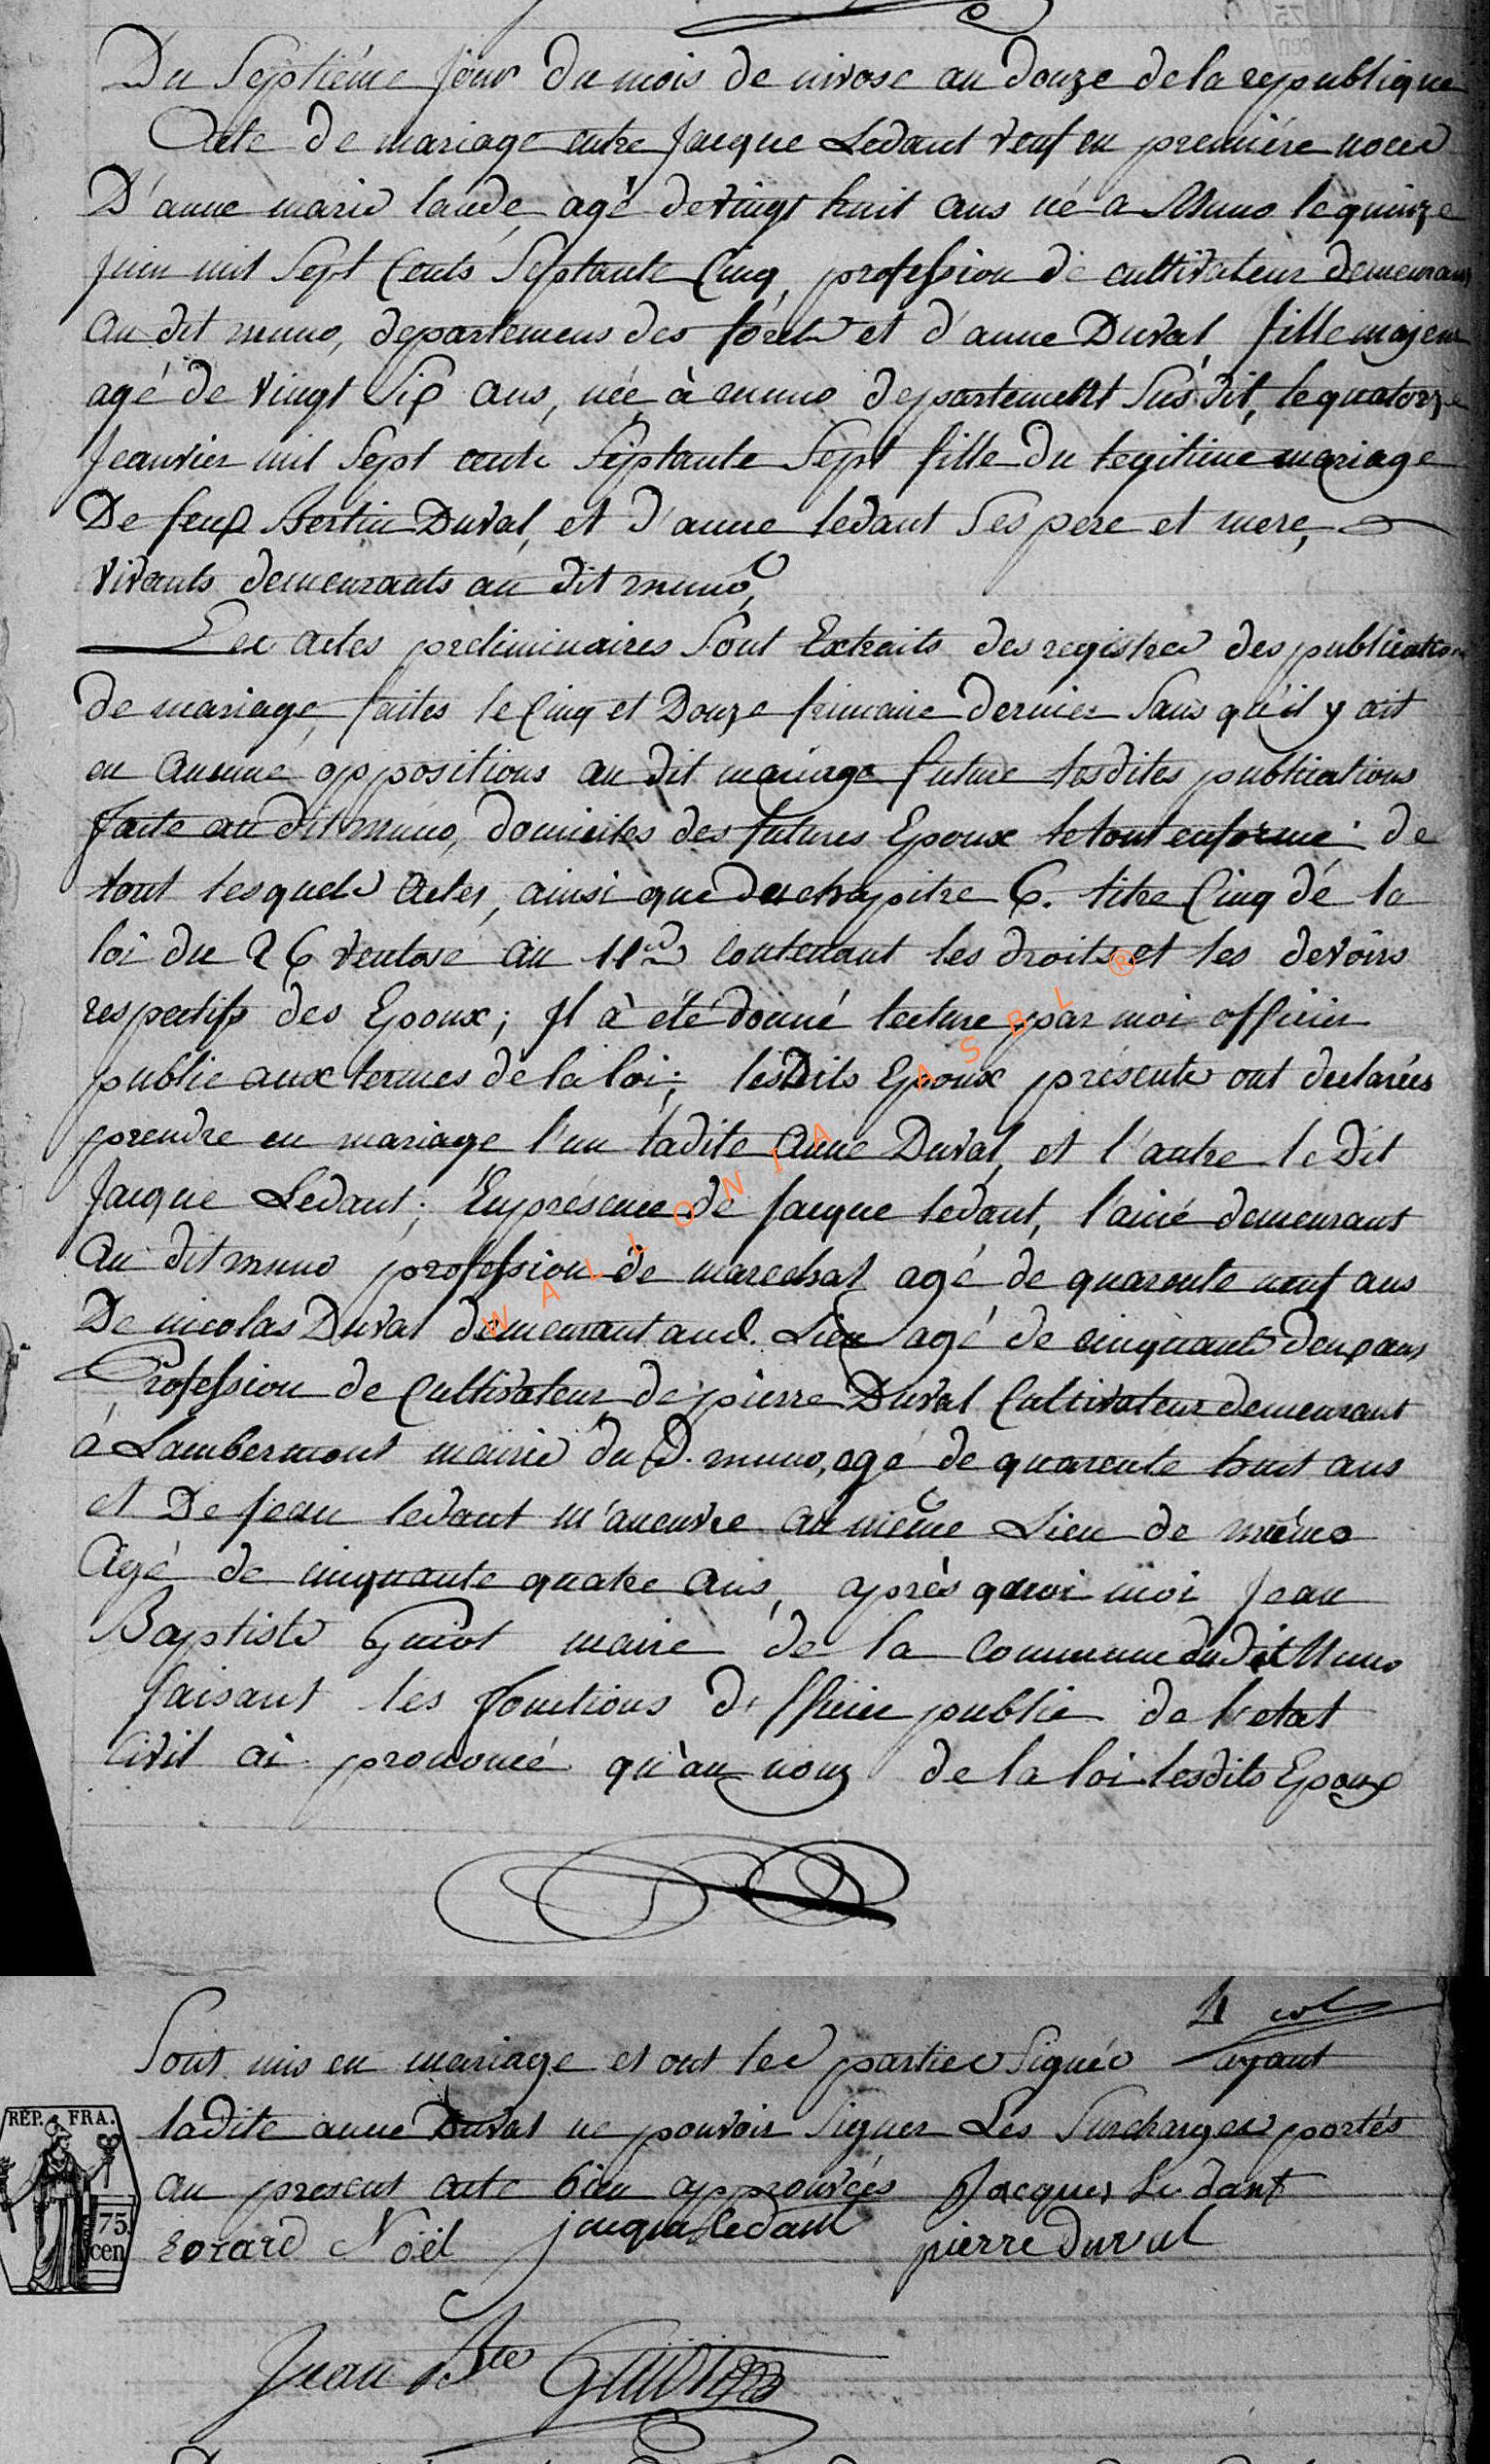 Du Septiéme jour du mois de nivose an douze de la republique
Acte de mariage entre Jacque Ledant veuf en premiére noces
D'anne marie laude, agé de vingt huit ans né a Muno le quinze
juin mil Sept Cents Septante Cinq, profession de cultivateur demeurant
au dit muno, departemens des forêts et d'anne Duval, fille majeure
agé de vingt Six ans, née à muno departement Sus dit, le quatorze
Jeanvier mil Sept cents Septante Sept fille du legitime mariage
De feux Bertin Duval, et d'anne ledant Ses pere et mere,
vivants demeurants au dit muno,
Les actes preliminaires Sont Extraits des registres des publications
de mariage, faites le Cinq et Douze frimaire dernier Sans qu'il y ait
eu aucune oppositions au dit mariage future lesdites publications
faite au dit muno, domiciles des futures Epoux le tout en forme de
tout lesquels Actes, ainsi que du chapitre 6. titre Cinq dé la
loi du 26 ventose an 11 contenant les droits et les devoirs
respectifs des Epoux; Il à été donné lecture par moi officier
public aux termes de la loi; lesdits Epoux présents ont declarées
prendre en mariage l'un ladite anne Duval, et l'autre le dit
Jacque Ledant; En présence de Jacque ledant, l'ainé demeurant
au dit muno profession de marechal agé de quarante neuf ans
De nicolas Duval demeurant aud. Lieu agé de cinquante deux ans
Profession de Cultivateur de pierre Duval Cultivateur demeurant
à Lambermont mairie du D. muno, agé de quarente huit ans
et De jean ledant m'aneuvre au même Lieu de muno
Agé de cinquante quatre ans, après quoi moi Jean
Baptiste Guiot maire de la Commune du dit Muno
faisant les fonctions d'officier public de l'etat
Civil ai prononcé qu'au nom de la loi lesdits Epoux
Sont mis en mariage et ont les parties Signés ayant
ladite anne Duval ne pouvoir Signer Les Surcharges portés
au present acte bien approuvées Jacques Ledant
Evrard Noël jacque ledant pierre Duval
Jean Bte Guiot
RÉP. FRA.
75
cen
WALLONIA ASBL ®